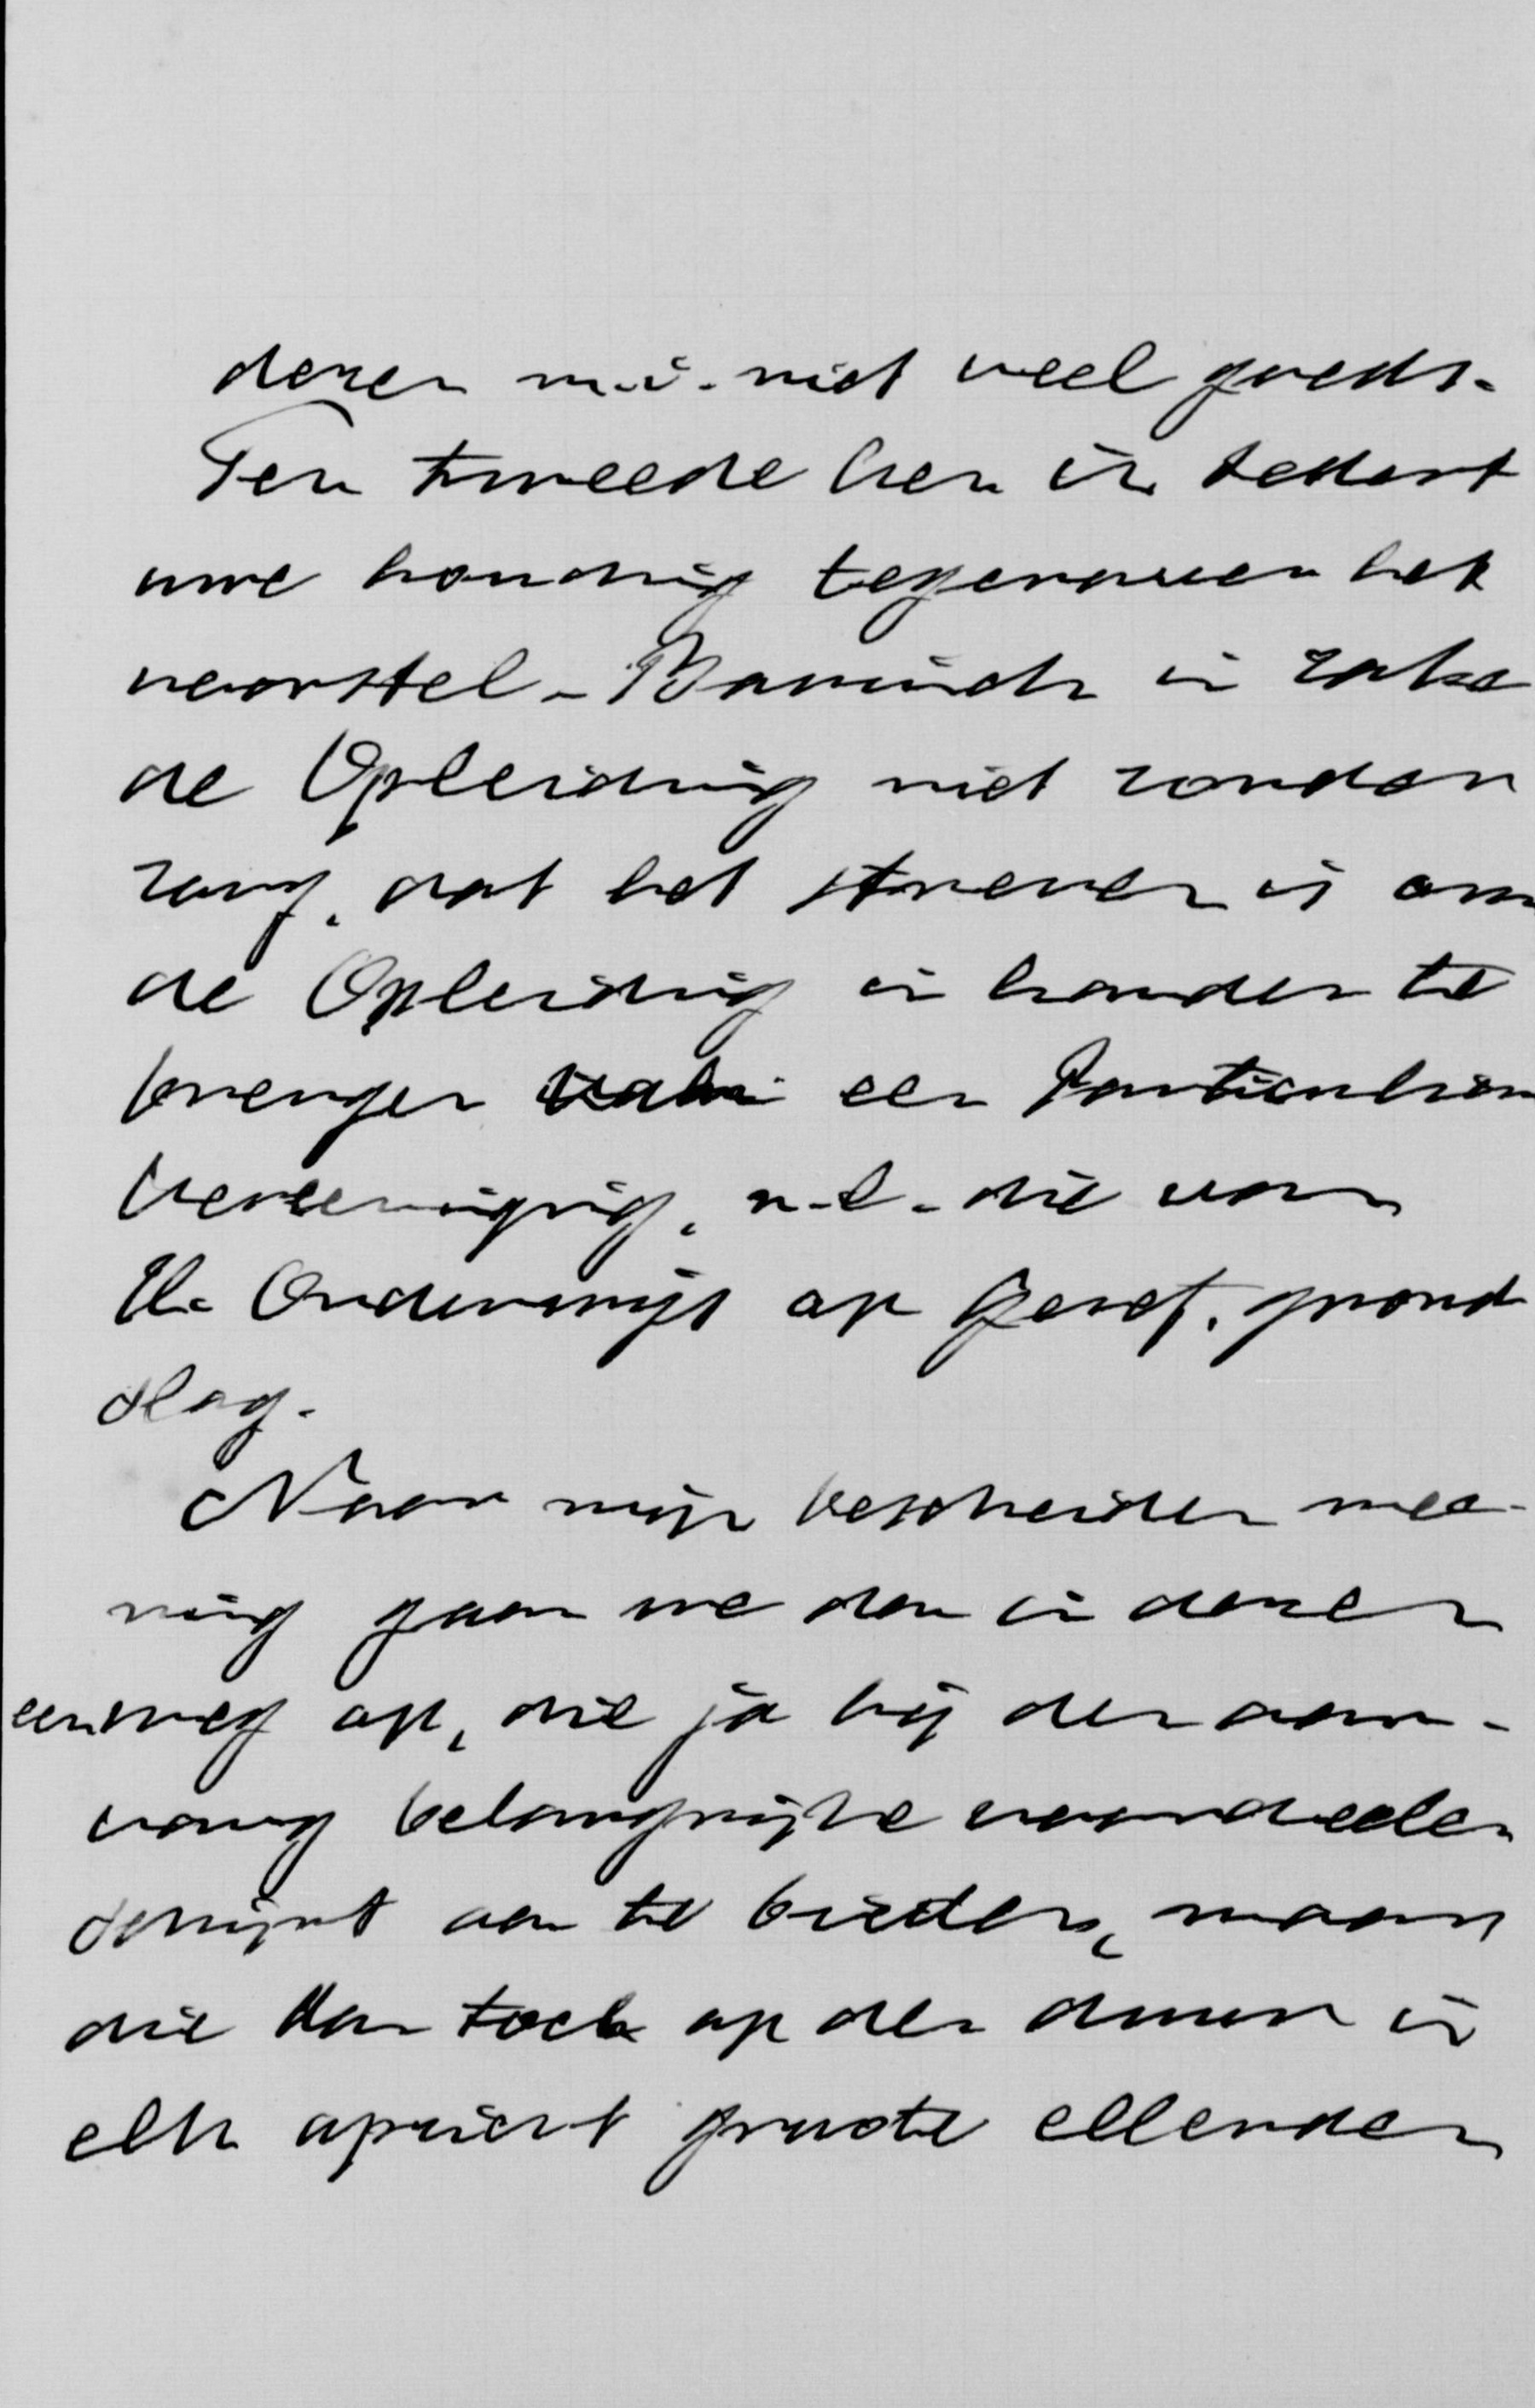 dezen m.i. niet veel goeds.
Ten tweede ben ik sedert
uwe houding tegenover het
voorstel-Bavinck in zake
de Opleiding niet zonder
zorg, dat het streven is om
de Opleiding in handen te
brengen van een Particuliere
Vereeniging, n.l. die van
H. Onderwijs op Geref. grond
slag.
Naar mijn bescheiden mee-
ning gaan we dan in dezen
een weg op, die ja bij den aan-
vang belangrijke voordeelen
schijnt aan te bieden, maar
die dan toch op den duur in
elk opzicht groote ellenden